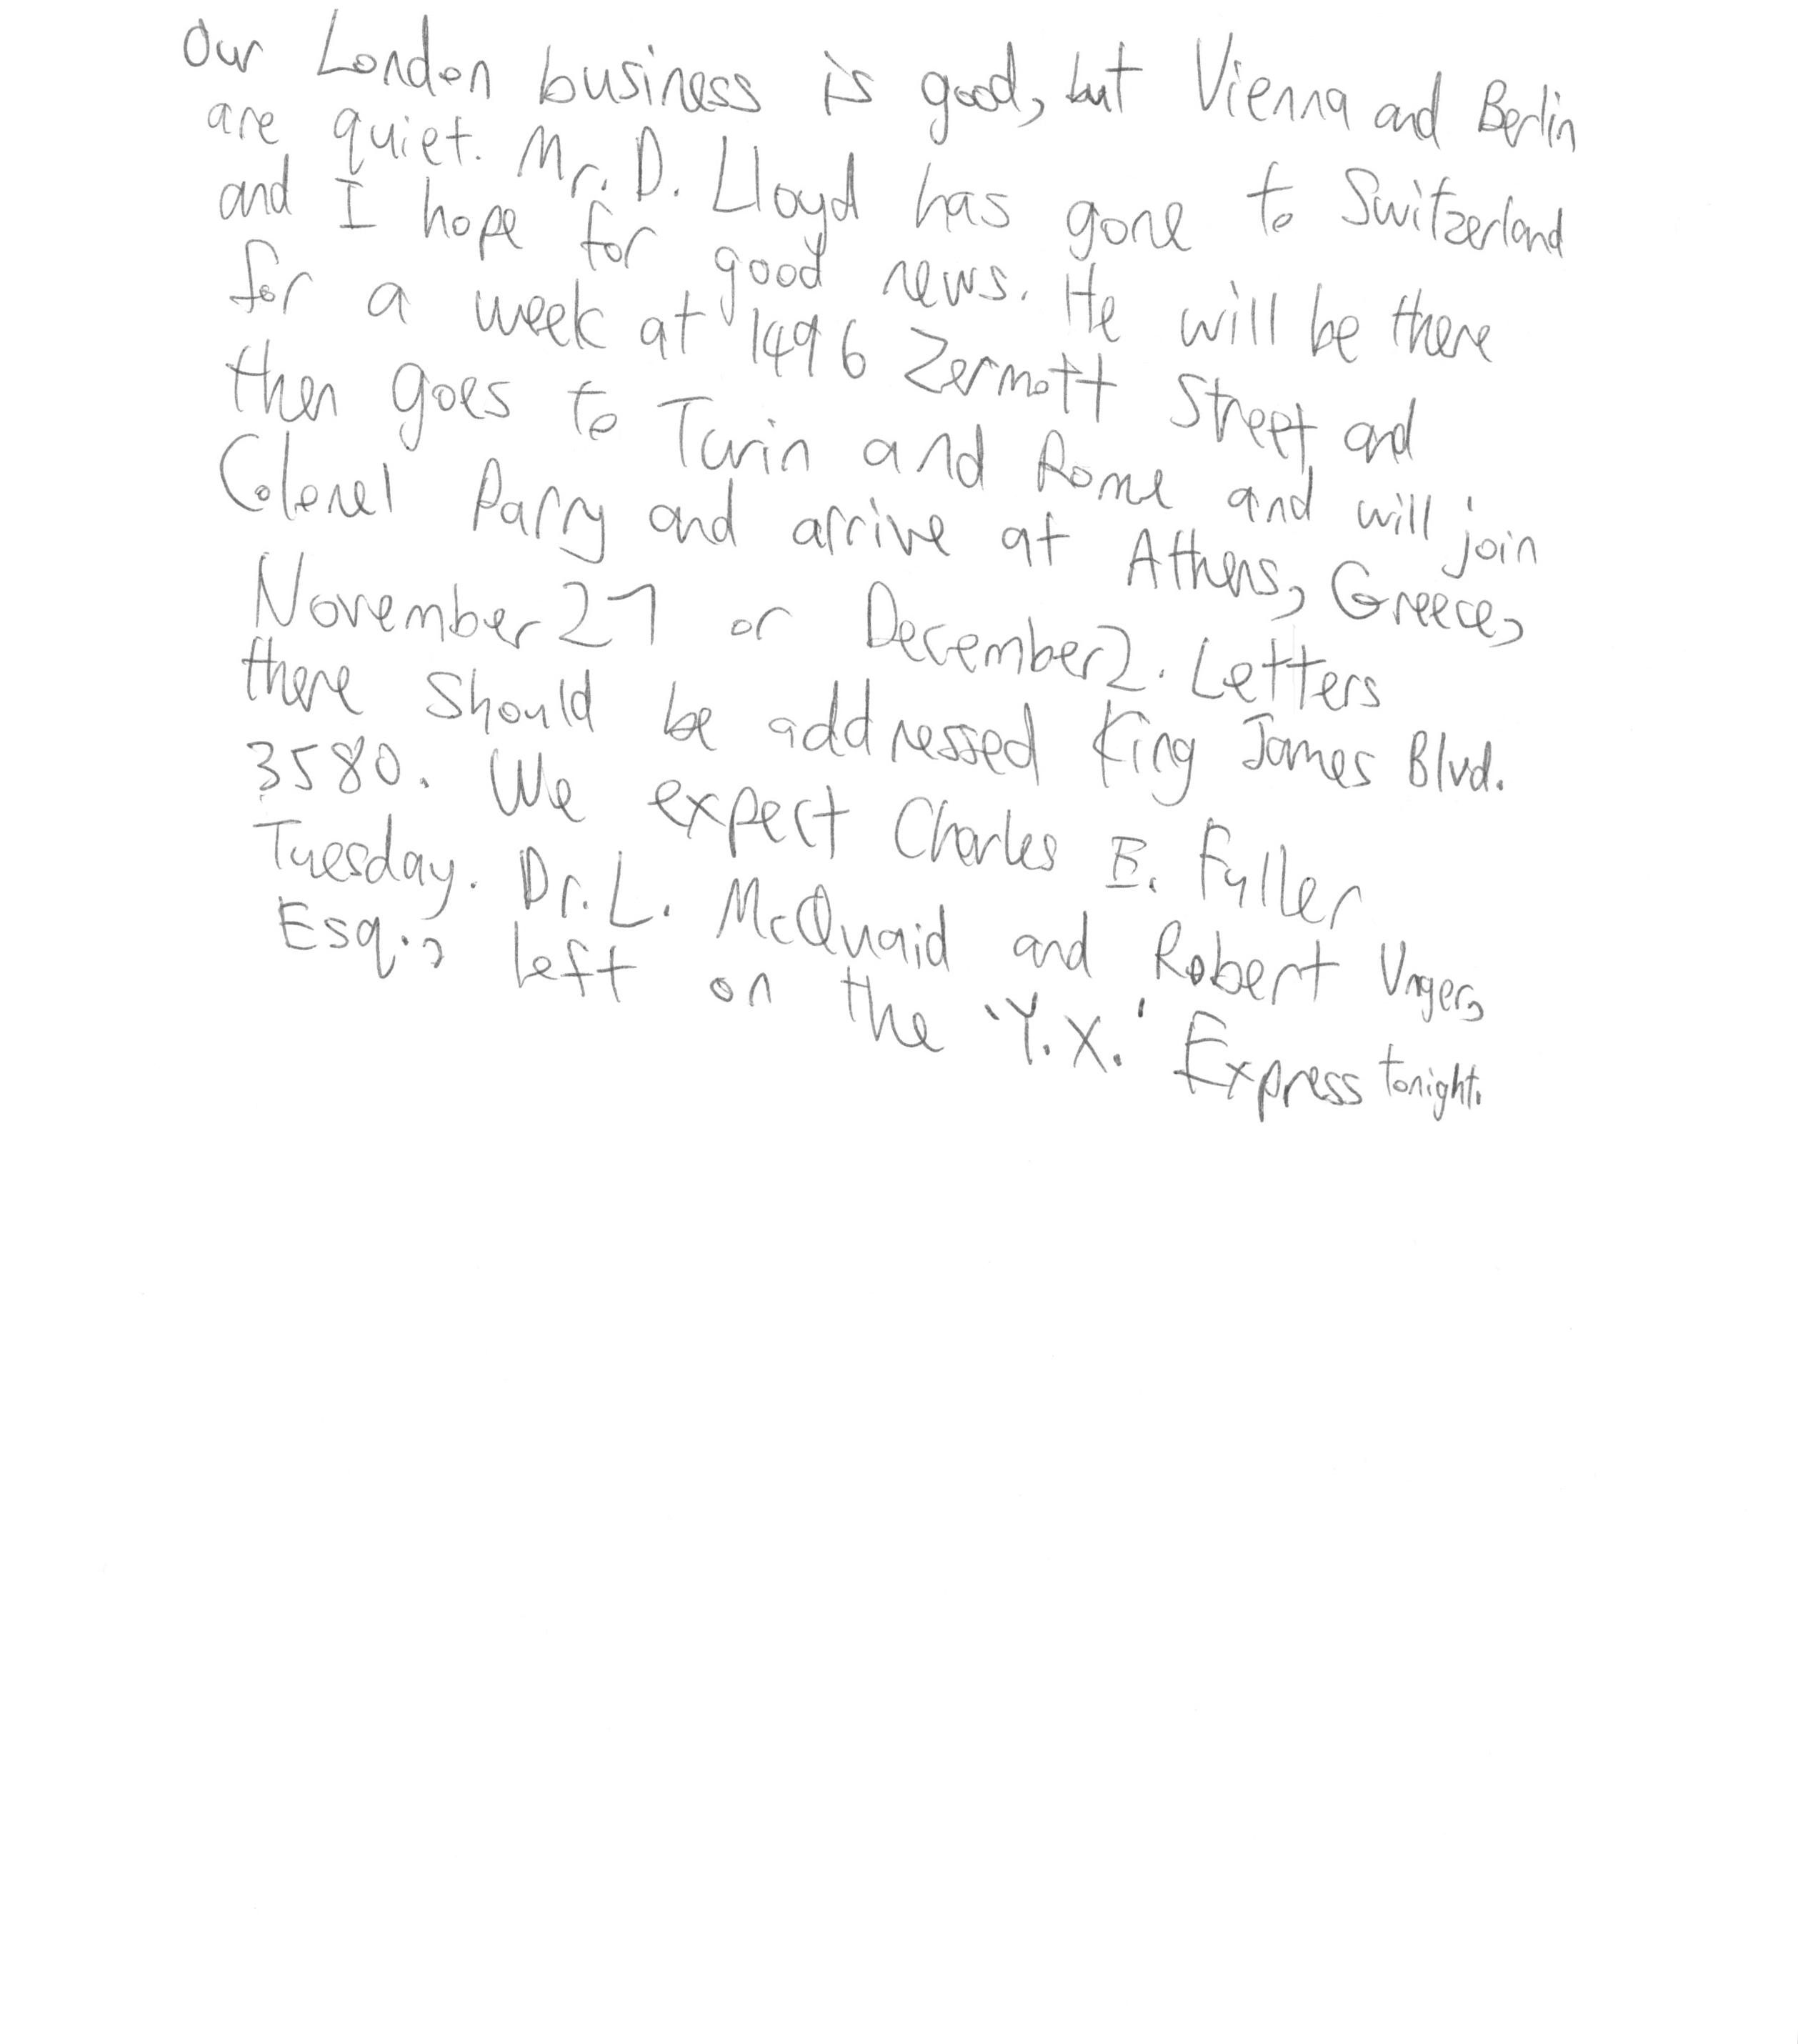 Our London business is good, but Vienna and Berlin
are quiet. Mr. D. Lloyd has gone to Switzerland
and I hope for good news. He will be there
for a week at 1496 Zermott Street and
then goes to Turin and Rome and will join
Colonel Parry and arrive at Athens, Greece,
November 27 or December 2. Letters
there should be addressed King James Blvd.
3580. We expect Charles E. Fuller
Tuesday. Dr. L. McQuaid and Robert Unger,
Esq., left on the 'Y.X.' Express tonight.